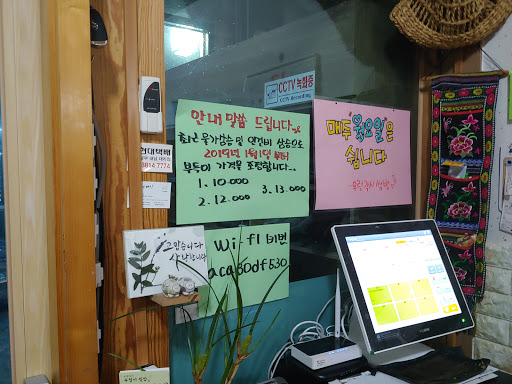 CCTV 녹화중
CCTV Recording
안내 말씀 드립니다
최근 물가상승 및 인건비 상승으로
2019년 1월 1일 부터
부득이 가격을 조정합니다
1. 10.000
2. 12.000
3. 13.000
매주 목요일은
쉽니다
현대택배
3814 7774
고맙습니다
사랑합니다
Wifi 비번
aca60df530